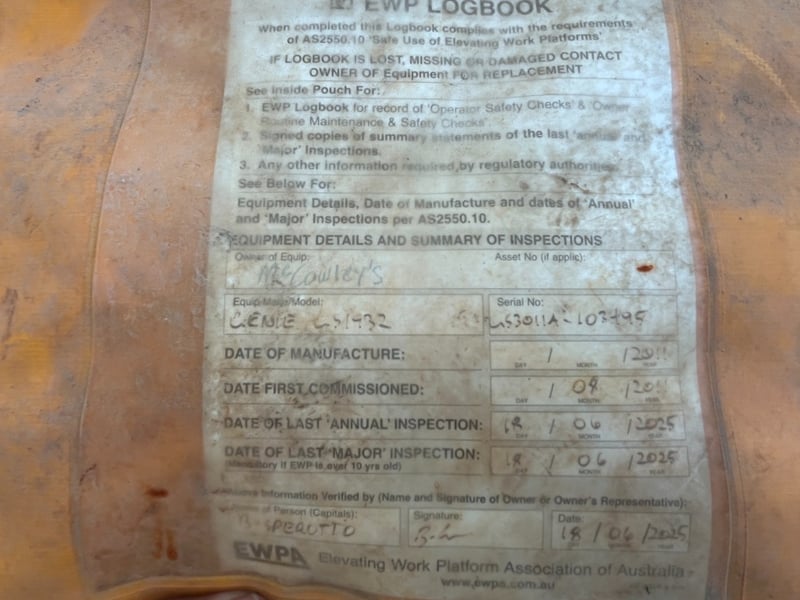 EWP LOGBOOK
When completed this Logbook complies with the requirements
of AS2550.10 'Safe Use of Elevating Work Platforms'
IF LOGBOOK IS LOST, MISSING OR DAMAGED CONTACT
OWNER OF Equipment FOR REPLACEMENT
See Inside Pouch For:
1. EWP Logbook for record of 'Operator Safety Checks' & 'Owner
Routine Maintenance & Safety Checks'
2. Signed copies of summary statements of the last 'annual' and
'Major' Inspections.
3. Any other information required by regulatory authorities.
See Below For:
Equipment Details, Date of Manufacture and dates of 'Annual'
and 'Major' Inspections per AS2550.10.
EQUIPMENT DETAILS AND SUMMARY OF INSPECTIONS
Owner of Equip: Asset No (if applic):
Equip Make/Model: Serial No:
GENIE GS1932 GS3011A-103495
DATE OF MANUFACTURE: / /2011
DAY MONTH YEAR
DATE FIRST COMMISSIONED: / 08 /2011
DAY MONTH YEAR
DATE OF LAST 'ANNUAL' INSPECTION: 18 / 06 /2025
DAY MONTH YEAR
DATE OF LAST 'MAJOR' INSPECTION: 18 / 06 /2025
(Mandatory if EWP is over 10 yrs old) DAY MONTH YEAR
Above Information Verified by (Name and Signature of Owner or Owner's Representative):
Name of Person (Capitals): Signature: Date:
SPEROTTO 18 / 06 /2025
DAY MONTH YEAR
EWPA Elevating Work Platform Association of Australia
www.ewpa.com.au